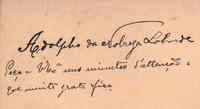 Adolpho da Nobrega Laboide
Peço-Vos uns minutos d'attenção e
por muito grato fica